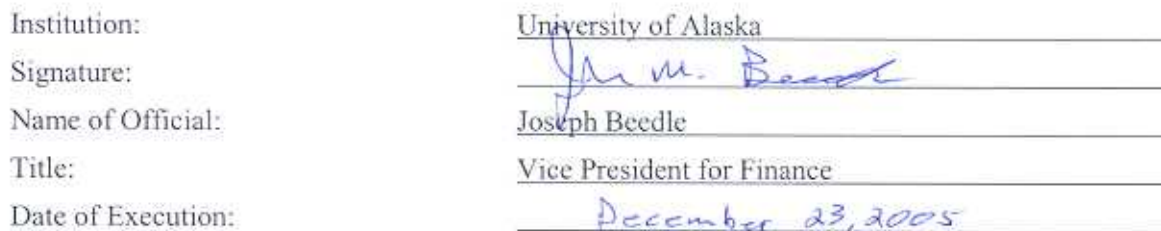 Institution: University of Alaska
Signature: Jm M. Beedle
Name of Official: Joseph Beedle
Title: Vice President for Finance
Date of Execution: December 23, 2005